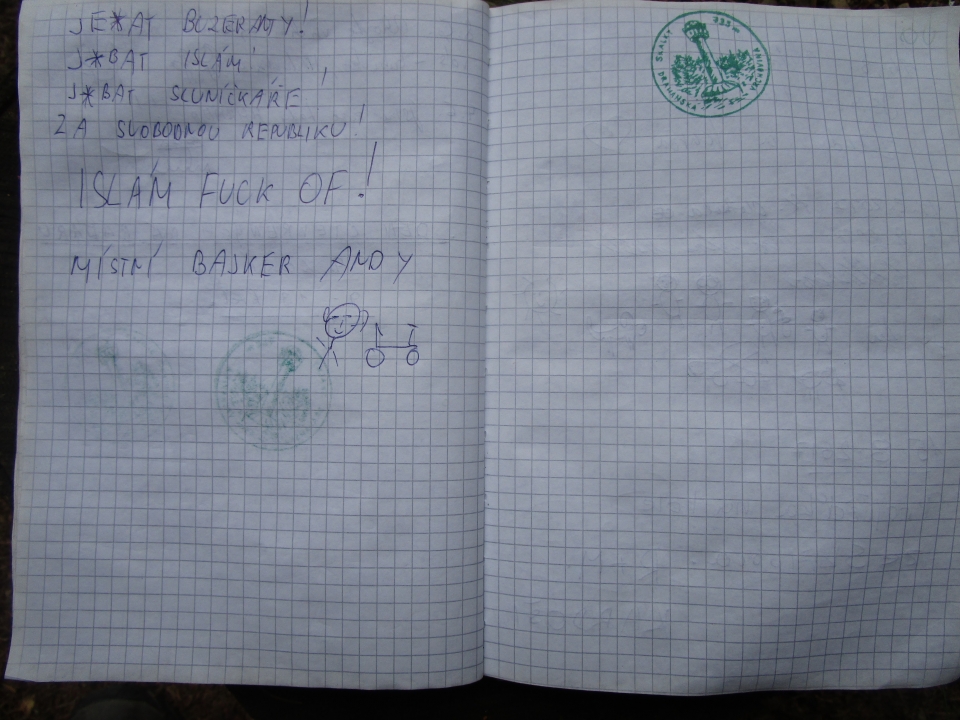 JE*AT BUZERANTY!
J*BAT ISLÁM!
J*BAT SLUNÍČKÁŘE!
ZA SVOBODNOU REPUBLIKU!
ISLÁM FUCK OF!
MÍSTNÍ BAJKER ANDY
SKALKY 735 m
DRAHANSKÁ VRCHOVINA